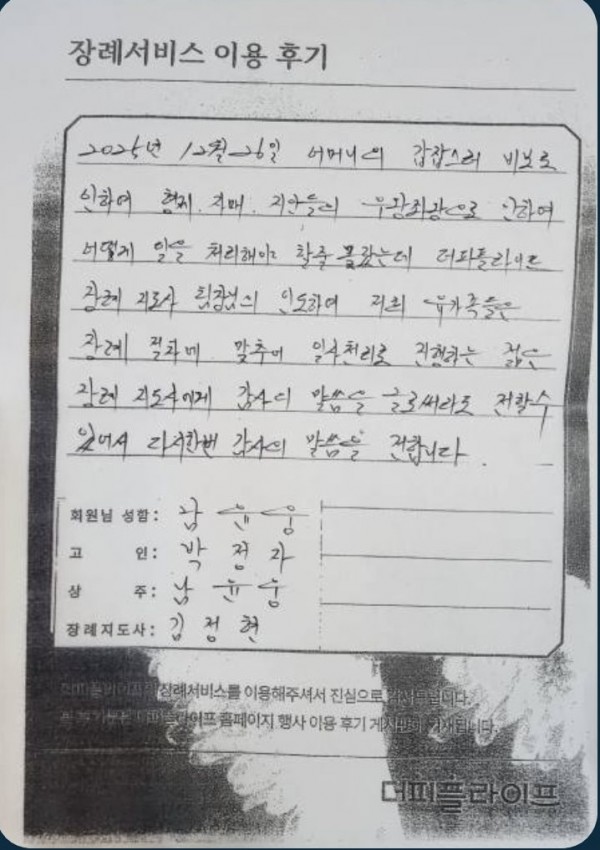 장례서비스 이용 후기
2025년 12월 26일 어머니의 갑잡스러 비보로
인하여 형제. 자매. 지안들의 우왕좌왕으로 인하여
어떻게 일을 처리해야 할줄 몰랐는데 더피플라이프
장례 지도사 팀장님의 인도하여 저희 유가족들은
장례 절차에 맞추어 일사천리로 진행하는 젊은
장례 지도사에게 감사의 말씀을 글로써라도 전할수
있어서 다시한번 감사의 말씀을 전합니다.
회원님 성함: 남윤웅
고 인: 박정자
상 주: 남윤웅
장례지도사: 김정현
장례서비스를 이용해주셔서 진심으로 감사드립니다.
홈페이지 행사 이용 후기 게시판에 기재됩니다.
더피플라이프